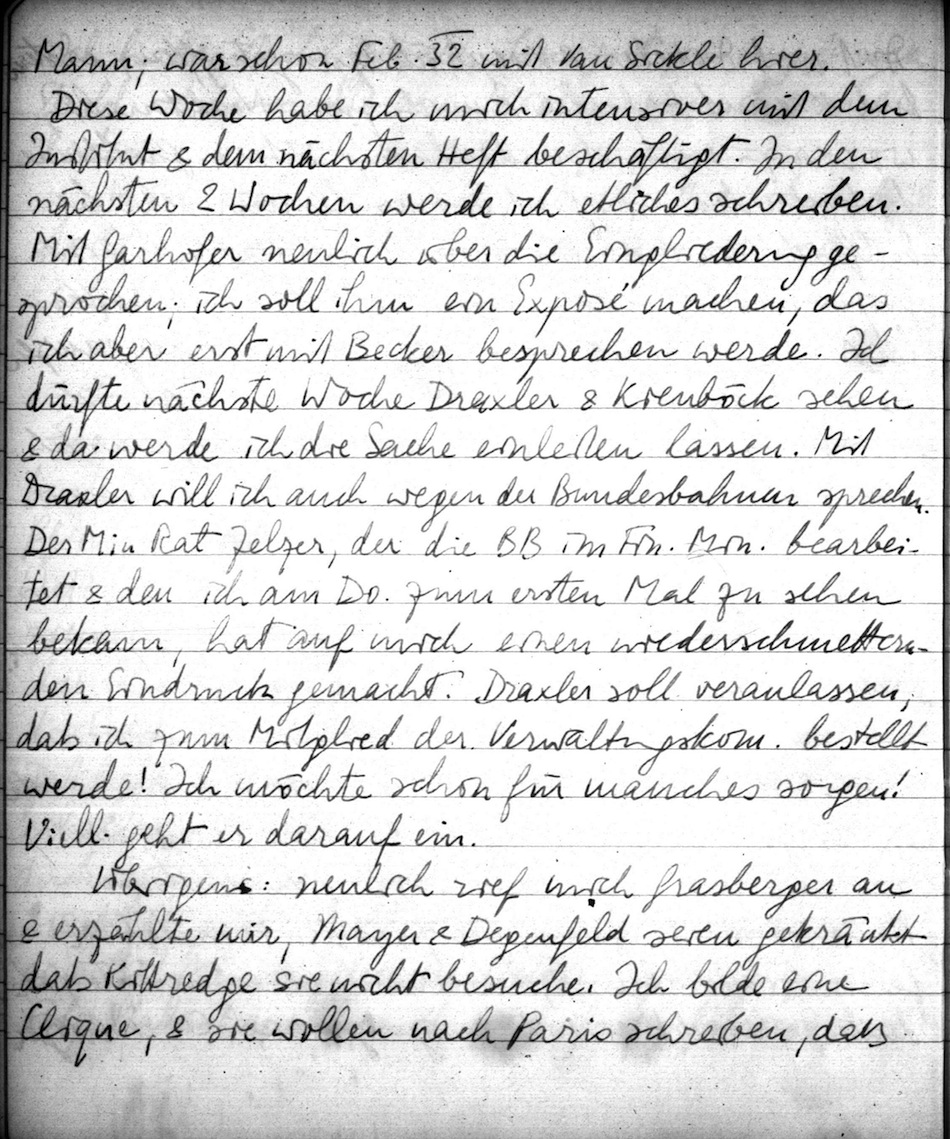 Mann; war schon Feb. 32 mit Van Sickle hier.
Diese Woche habe ich mich intensiver mit dem
Institut & dem nächsten Heft beschäftigt. In den
nächsten 2 Wochen werde ich etliches schreiben.
Mit Garhofer neulich über die Eingliederung ge-
sprochen; ich soll ihm ein Exposé machen, das
ich aber erst mit Becker besprechen werde. Ich
dürfte nächste Woche Draxler & Kienböck sehen
& da werde ich die Sache einleiten lassen. Mit
Draxler will ich auch wegen der Bundesbahnen sprechen.
Der Min Rat Zelzer, der die BB im Fin. Min. bearbei-
tet & den ich am Do. zum ersten Mal zu sehen
bekam, hat auf mich einen niederschmettern-
den Eindruck gemacht. Draxler soll veranlassen,
dass ich zum Mitglied der Verwaltungskom. bestellt
werde! Ich möchte schon für manches sorgen!
Viell. geht er darauf ein.
Übrigens: neulich rief mich Grasberger an
& erzählte mir, Mayer & Degenfeld seien gekränkt
dass Kittredge sie nicht besuche. Ich bilde eine
Clique, & sie wollen nach Paris schreiben, dass